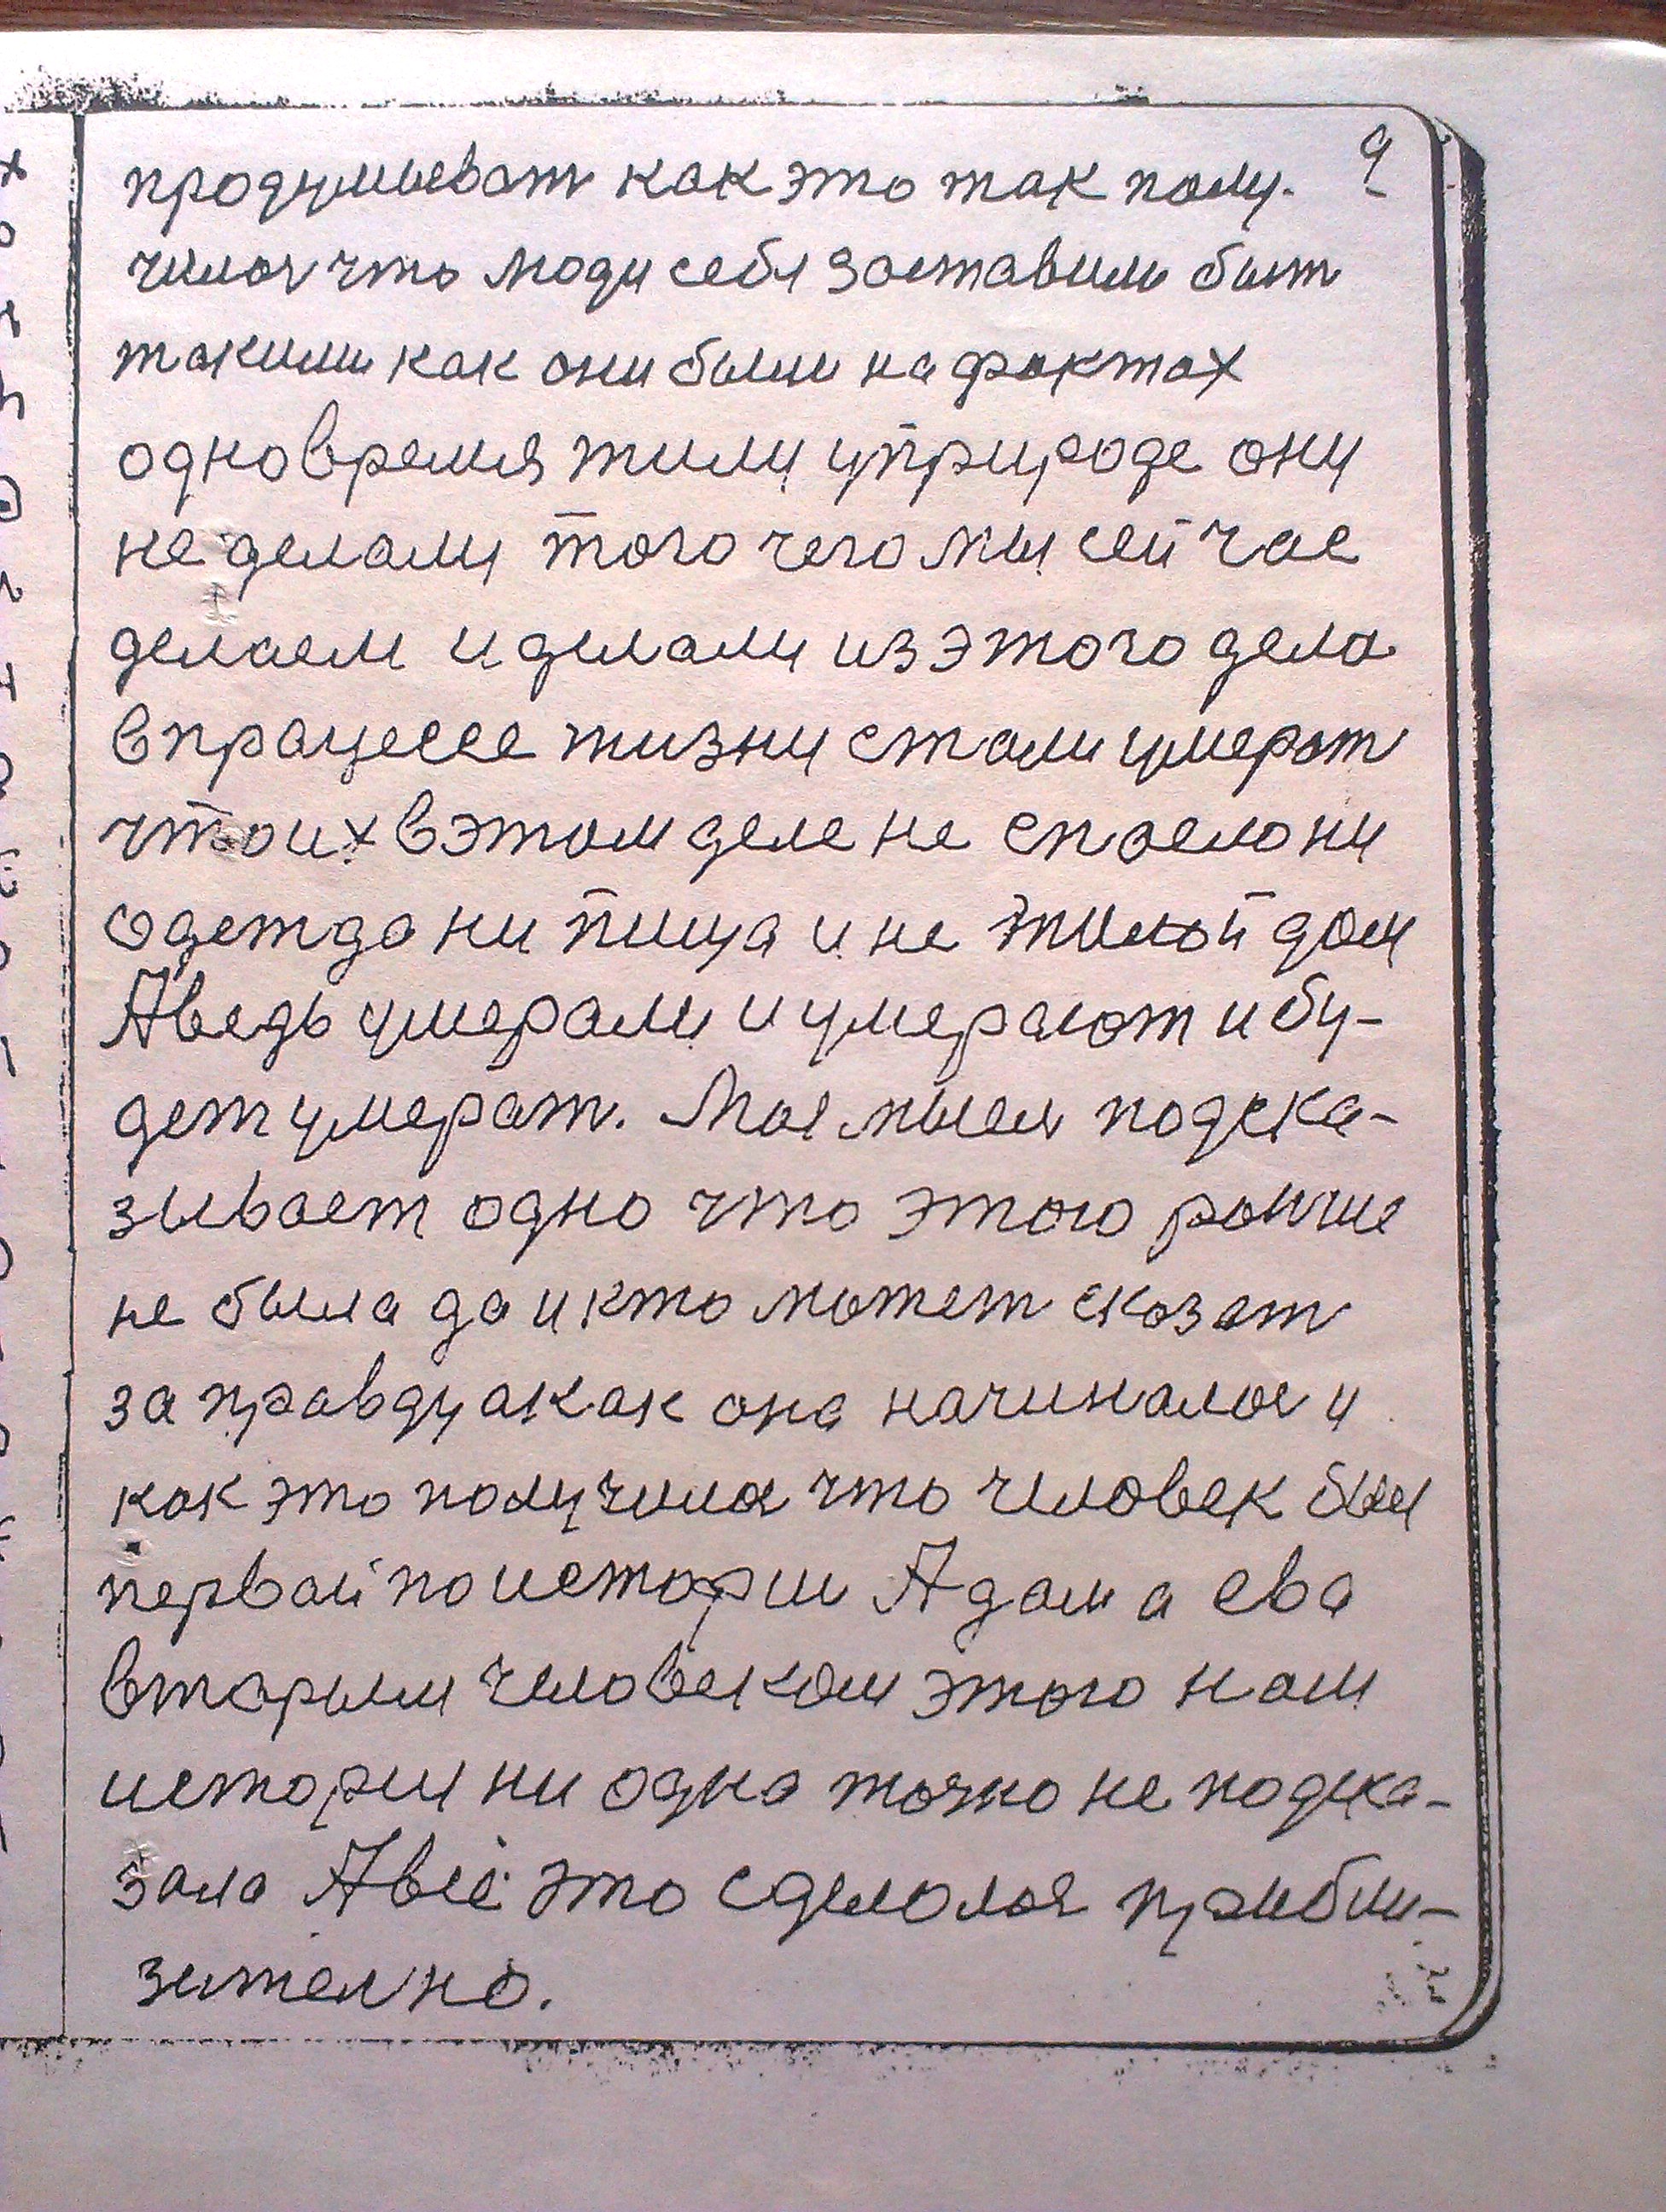 9
продумывват как это так полу-
чилося что люди себя заставили быт
такими как они были на фактах
одно время жили у природе они
не делали того чего мы сейчас
делаем и делали из этого дела
в працессе жизни стали умерат
что их в этом деле не спасло ни
одежда ни пища и не жилой дом
А ведь умерали и умерают и бу-
дет умерат. Моя мысля подска-
зывает одно что этого раньше
не была да и кто может сказат
за правду а как она началалося и
как это получился что человек был
первай по истории Адам а ева
вторым человеком этого нам
истории ни одна точно не подска-
зала А всё это сделолося прибли-
зително.